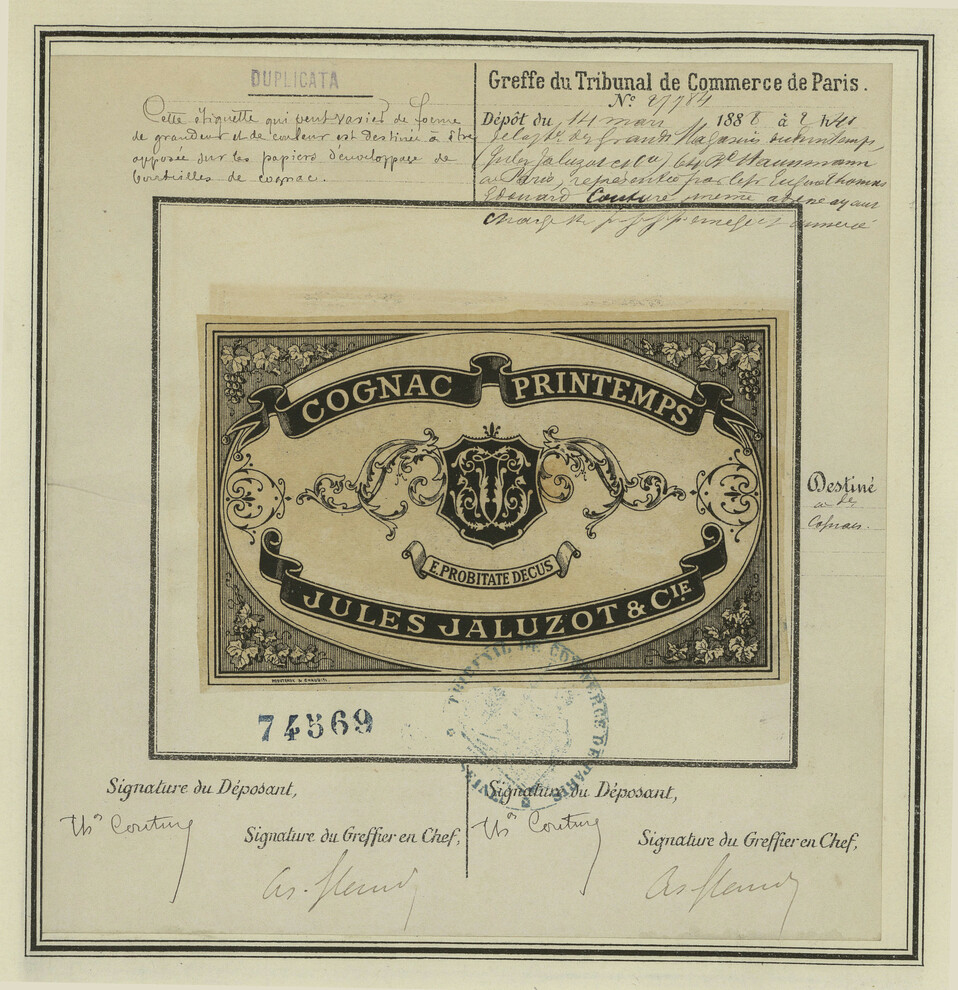 DUPLICATA
Cette étiquette qui peut varier de forme
de grandeur et de couleur est destinée à être
apposée sur les papiers d'enveloppage de
bouteilles de cognac.
Greffe du Tribunal de Commerce de Paris.
N°
Dépôt du 14 mars 1888 à 2 h 40
des Grands Magasins du Printemps,
(Jules Jaluzot & Cie) Bd Haussmann
à Paris, représentée par le sr Eugène Thomas
Edouard Couture
COGNAC PRINTEMPS
E PROBITATE DECUS
JULES JALUZOT & CIE
Destiné
à de
Cognac.
74569
TRIBUNAL DE COMMERCE DE PARIS
Signature du Déposant,
Ths Couture
Signature du Greffier en Chef,
Signature du Déposant,
Ths Couture
Signature du Greffier en Chef,